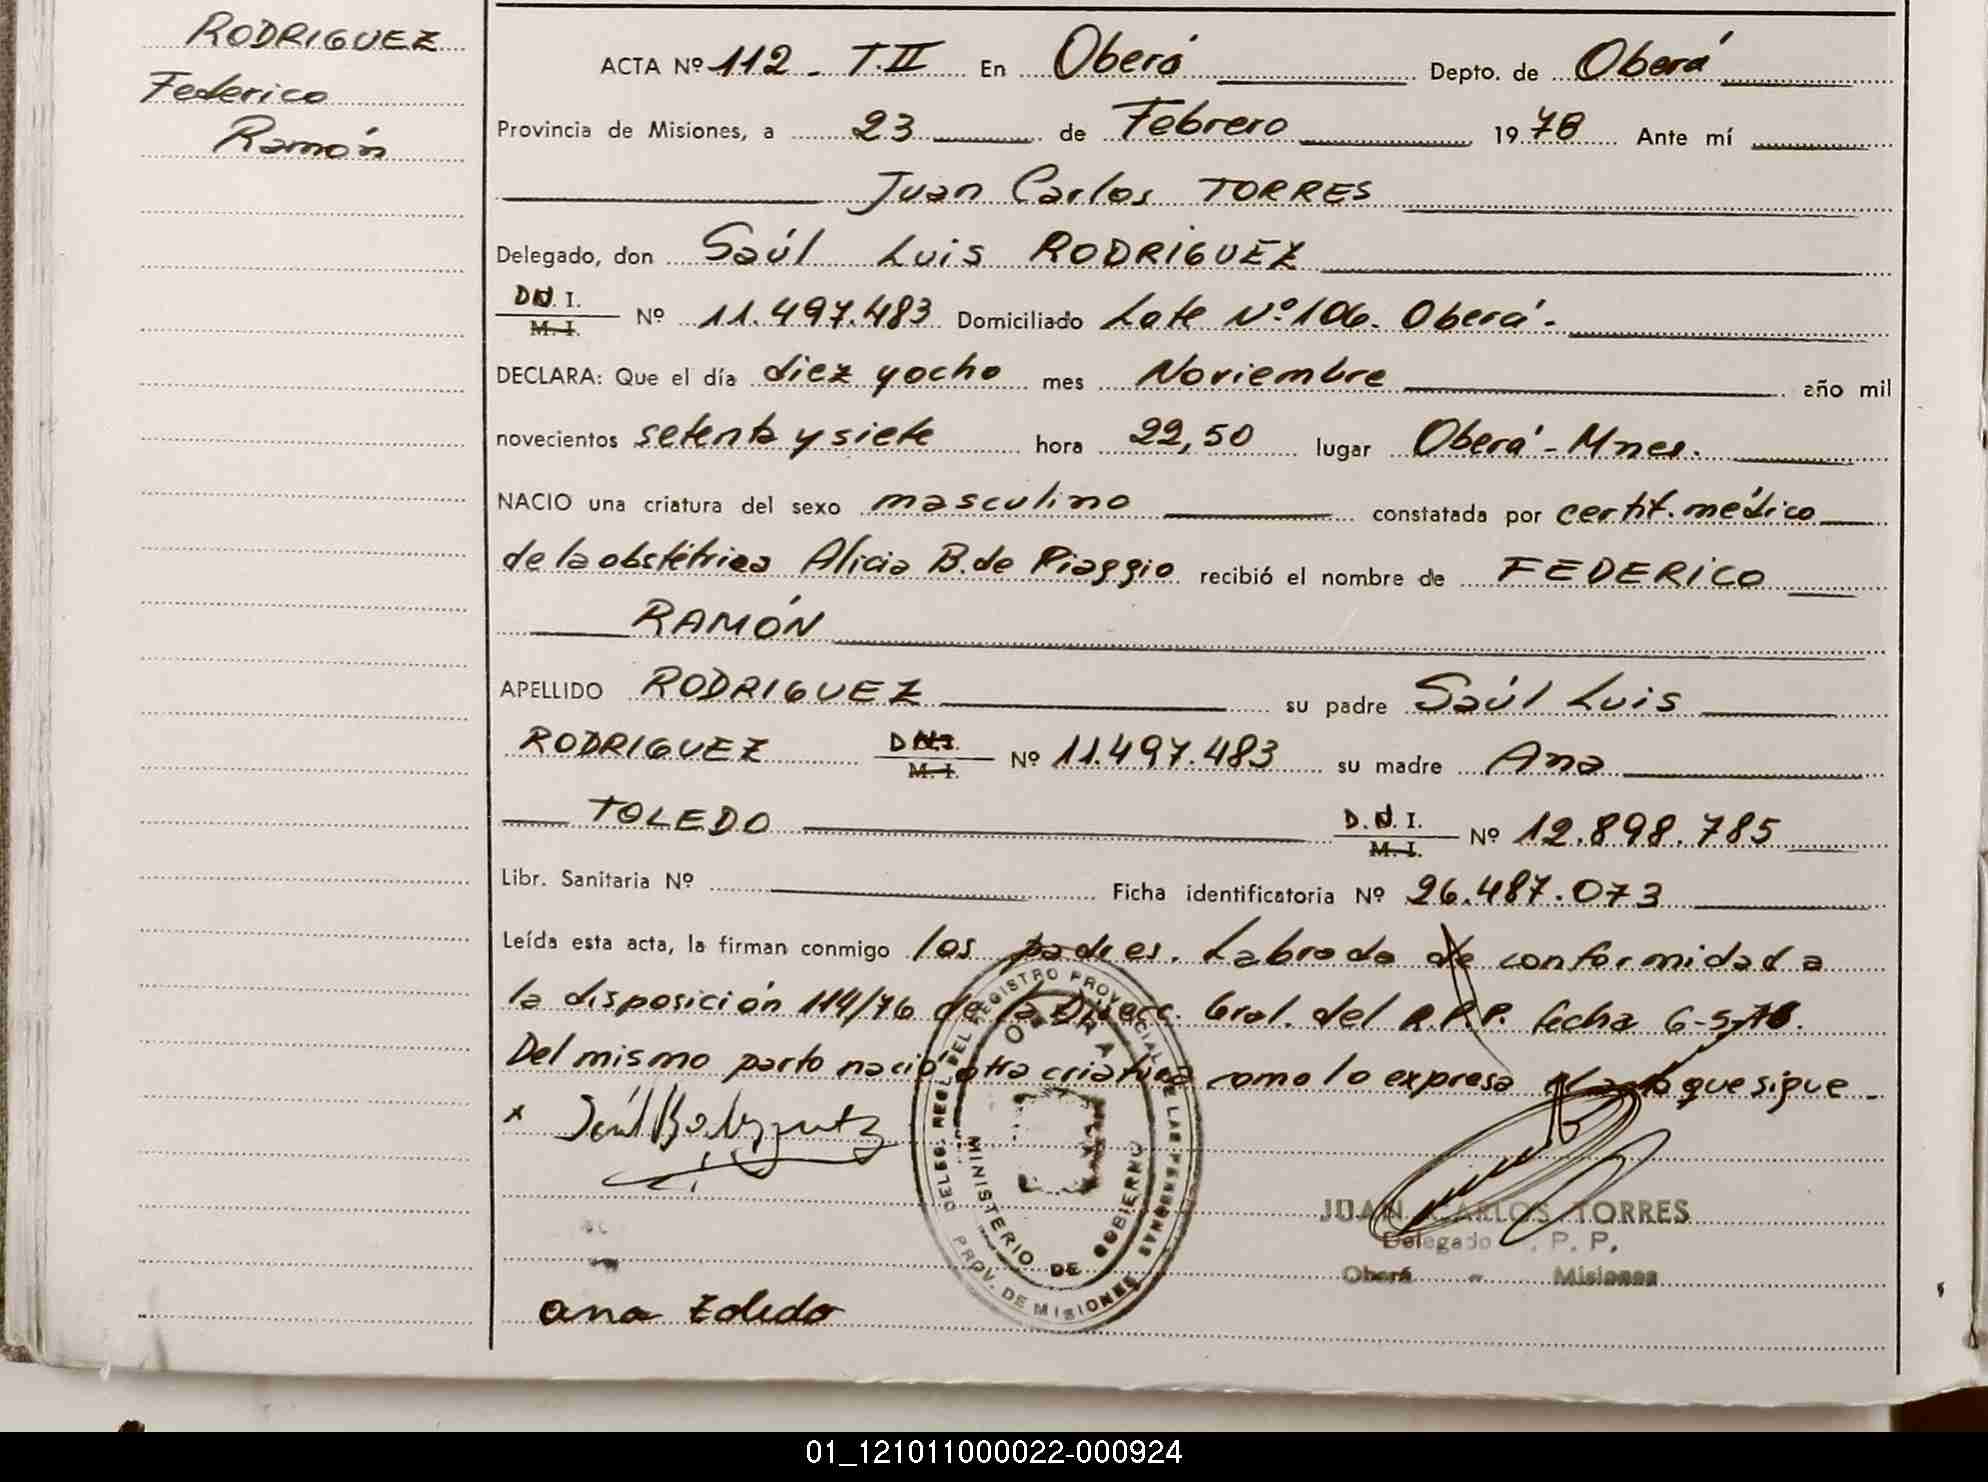 RODRIGUEZ
Federico
Ramón
ACTA Nº 112 - T.II En Oberá Depto. de Oberá
Provincia de Misiones, a 23 de Febrero 1978 Ante mí
Juan Carlos TORRES
Delegado, don Saúl Luis RODRIGUEZ
DN. I.
M. I. Nº 11.497.483 Domiciliado Lote Nº 106. Oberá -
DECLARA: Que el día diez y ocho mes Noviembre año mil
novecientos setenta y siete hora 22,50 lugar Oberá - Mnes.
NACIO una criatura del sexo masculino constatada por certif. médico
de la obstétrica Alicia B. de Piaggio recibió el nombre de FEDERICO
RAMÓN
APELLIDO RODRIGUEZ su padre Saúl Luis
RODRIGUEZ DN.I.
M. I. Nº 11.497.483 su madre Ana
TOLEDO D.N. I.
M. I. Nº 12.898.785
Libr. Sanitaria Nº Ficha identificatoria Nº 26.487.073
Leída esta acta, la firman conmigo los padres. Labrada de conformidad a
la disposición 114/76 de la Direcc. Gral. del R.P.P. fecha 6-5-76.
Del mismo parto nació otra criatura como lo expresa el acta que sigue -
x Saúl Rodriguez
DELEG. REGL. DEL REGISTRO PROVINCIAL DE LAS PERSONAS
OBERA
MINISTERIO DE GOBIERNO
PROV. DE MISIONES
JUAN CARLOS TORRES
Delegado . P. P.
Oberá - Misiones
ana toledo
01_121011000022-000924